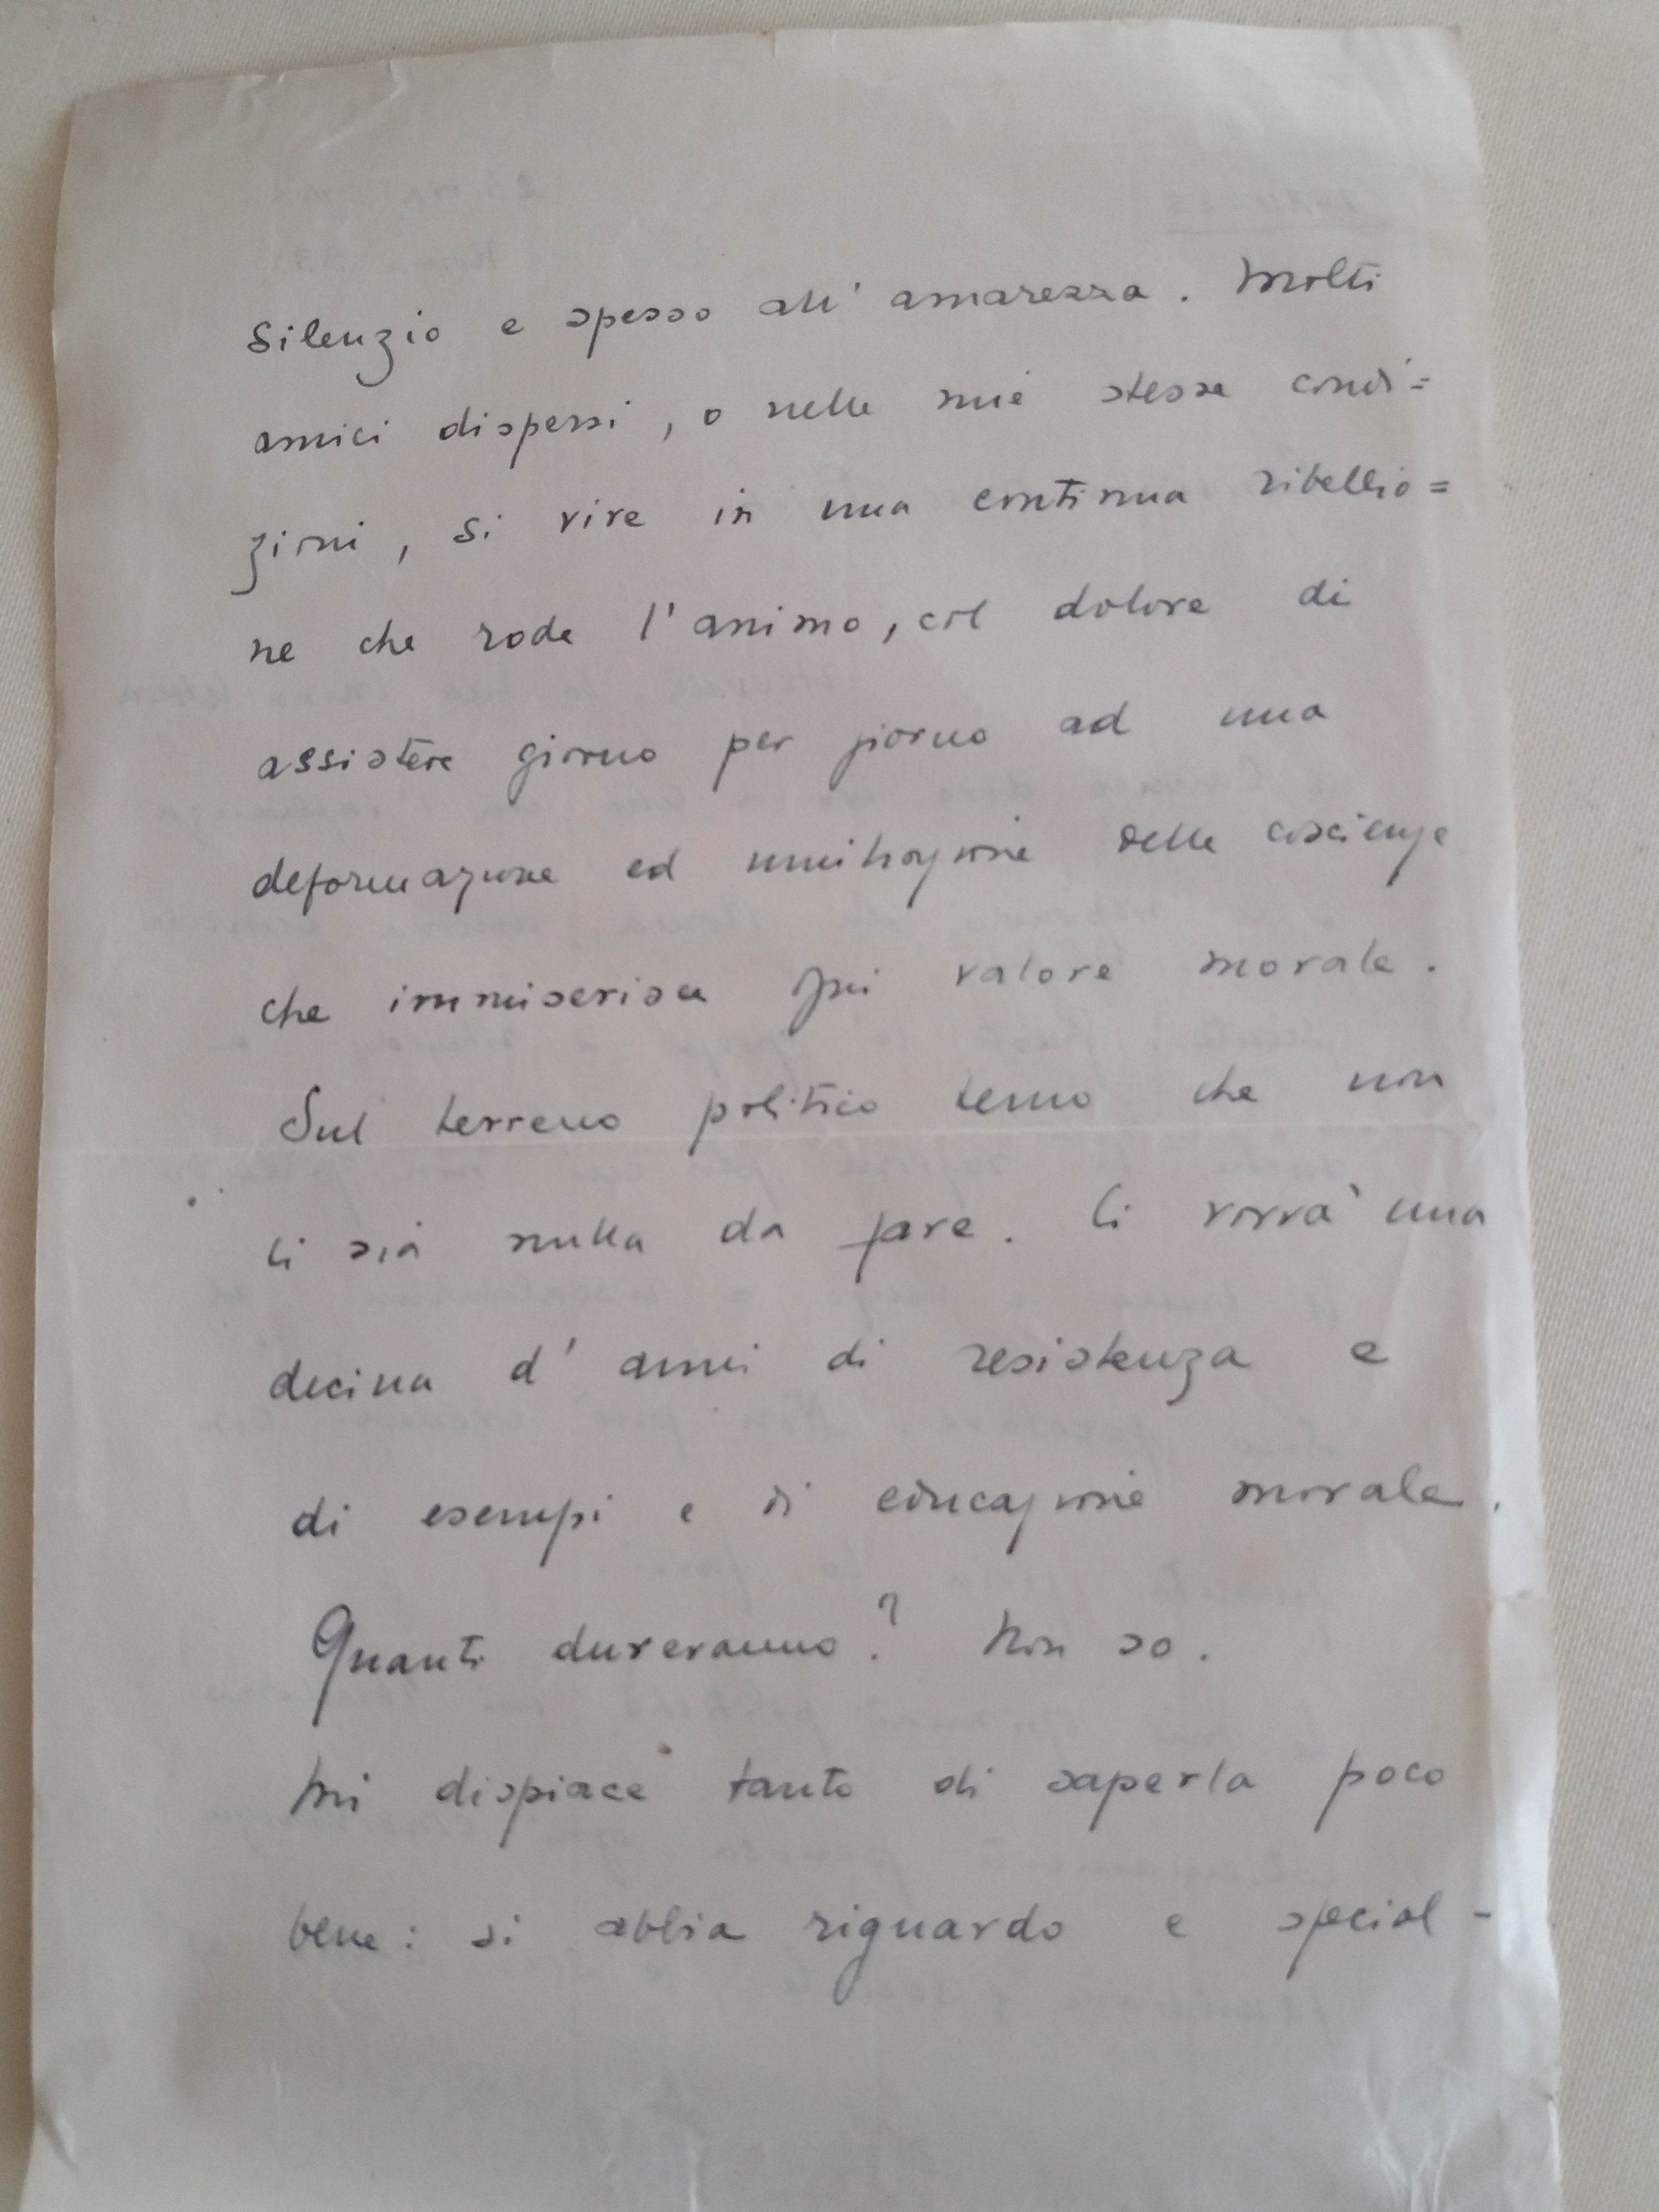 silenzio e spesso all' amarezza. Molti
amici dispersi, o nelle mie stesse condi=
zioni, si vive in una continua ribellio=
ne che rode l'animo, col dolore di
assistere giorno per giorno ad una
deformazione ed umiliazione delle coscienze
che immiserisce ogni valore morale.
Sul terreno politico temo che non
ci sia nulla da fare. Ci vorrà una
decina d' anni di resistenza e
di esempi e di educazione morale.
Quanti dureranno? Non so.
Mi dispiace tanto di saperla poco
bene: si abbia riguardo e special-